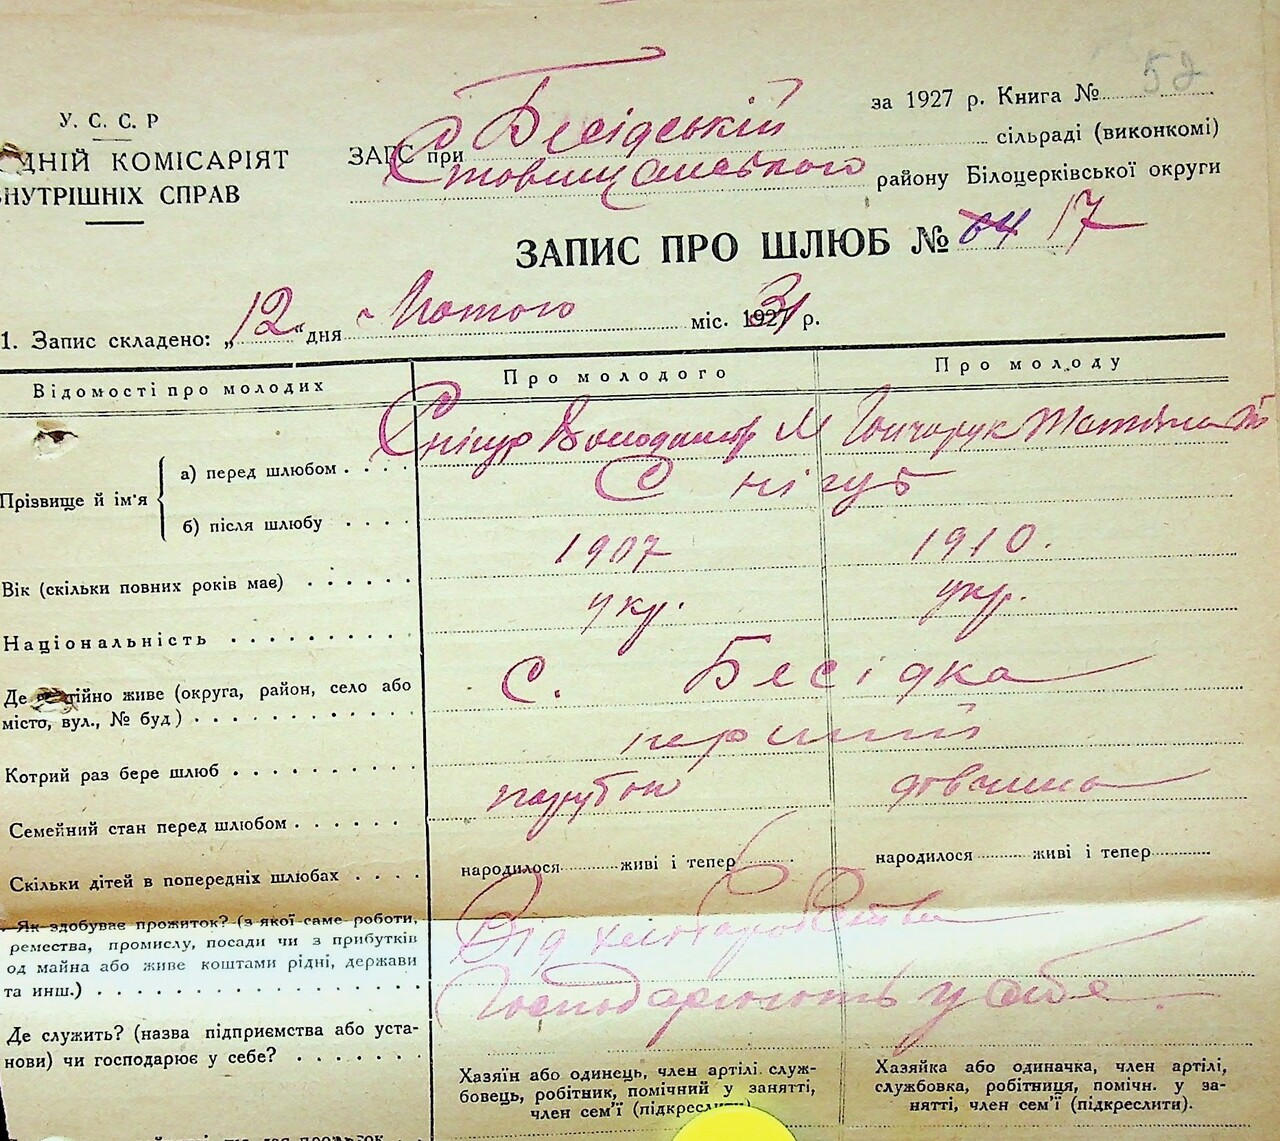 52
У. С. С. Р
ДНІЙ КОМІСАРІЯТ
ВНУТРІШНІХ СПРАВ
за 1927 р. Книга №
ЗАГС при Бесідській сільраді (виконкомі)
Ставищанського району Білоцерківської округи
ЗАПИС ПРО ШЛЮБ № 64 17
1. Запис складено: „12“ дня Лютого міс. 1931 р.
Відомості про молодих
Про молодого
Про молоду
Прізвище й ім'я
а) перед шлюбом . . . .
Снігур Володимир М
Гончарук Тетяна
б) після шлюбу . . . .
Снігур
Вік (скільки повних років має) . . . . . .
1907
1910.
Національність . . . . . . . . . .
укр.
укр.
Де постійно живе (округа, район, село або
місто, вул., № буд) . . . . . . . . . . . .
С. Бесідка
Котрий раз бере шлюб . . . . . . . . . .
перший
Семейний стан перед шлюбом . . . . . .
парубок
дівчина
Скільки дітей в попередніх шлюбах . . . .
народилося ......... живі і тепер
народилося ......... живі і тепер
Як здобуває прожиток? (з якої саме роботи,
ремества, промислу, посади чи з прибутків
од майна або живе коштами рідні, держави
та инш.) . . . . . . . . . . . . . . . . .
Від хліборобства
Де служить? (назва підприємства або уста-
нови) чи господарює у себе? . . . . . . .
Господарюють у себе.
Хазяїн або одинець, член артілі службовець, робітник, помічний у занятті,
член сем'ї (підкреслити)
Хазяйка або одиначка, член артілі,
службовка, робітниця, помічн. у за-
нятті, член сем'ї (підкреслити).